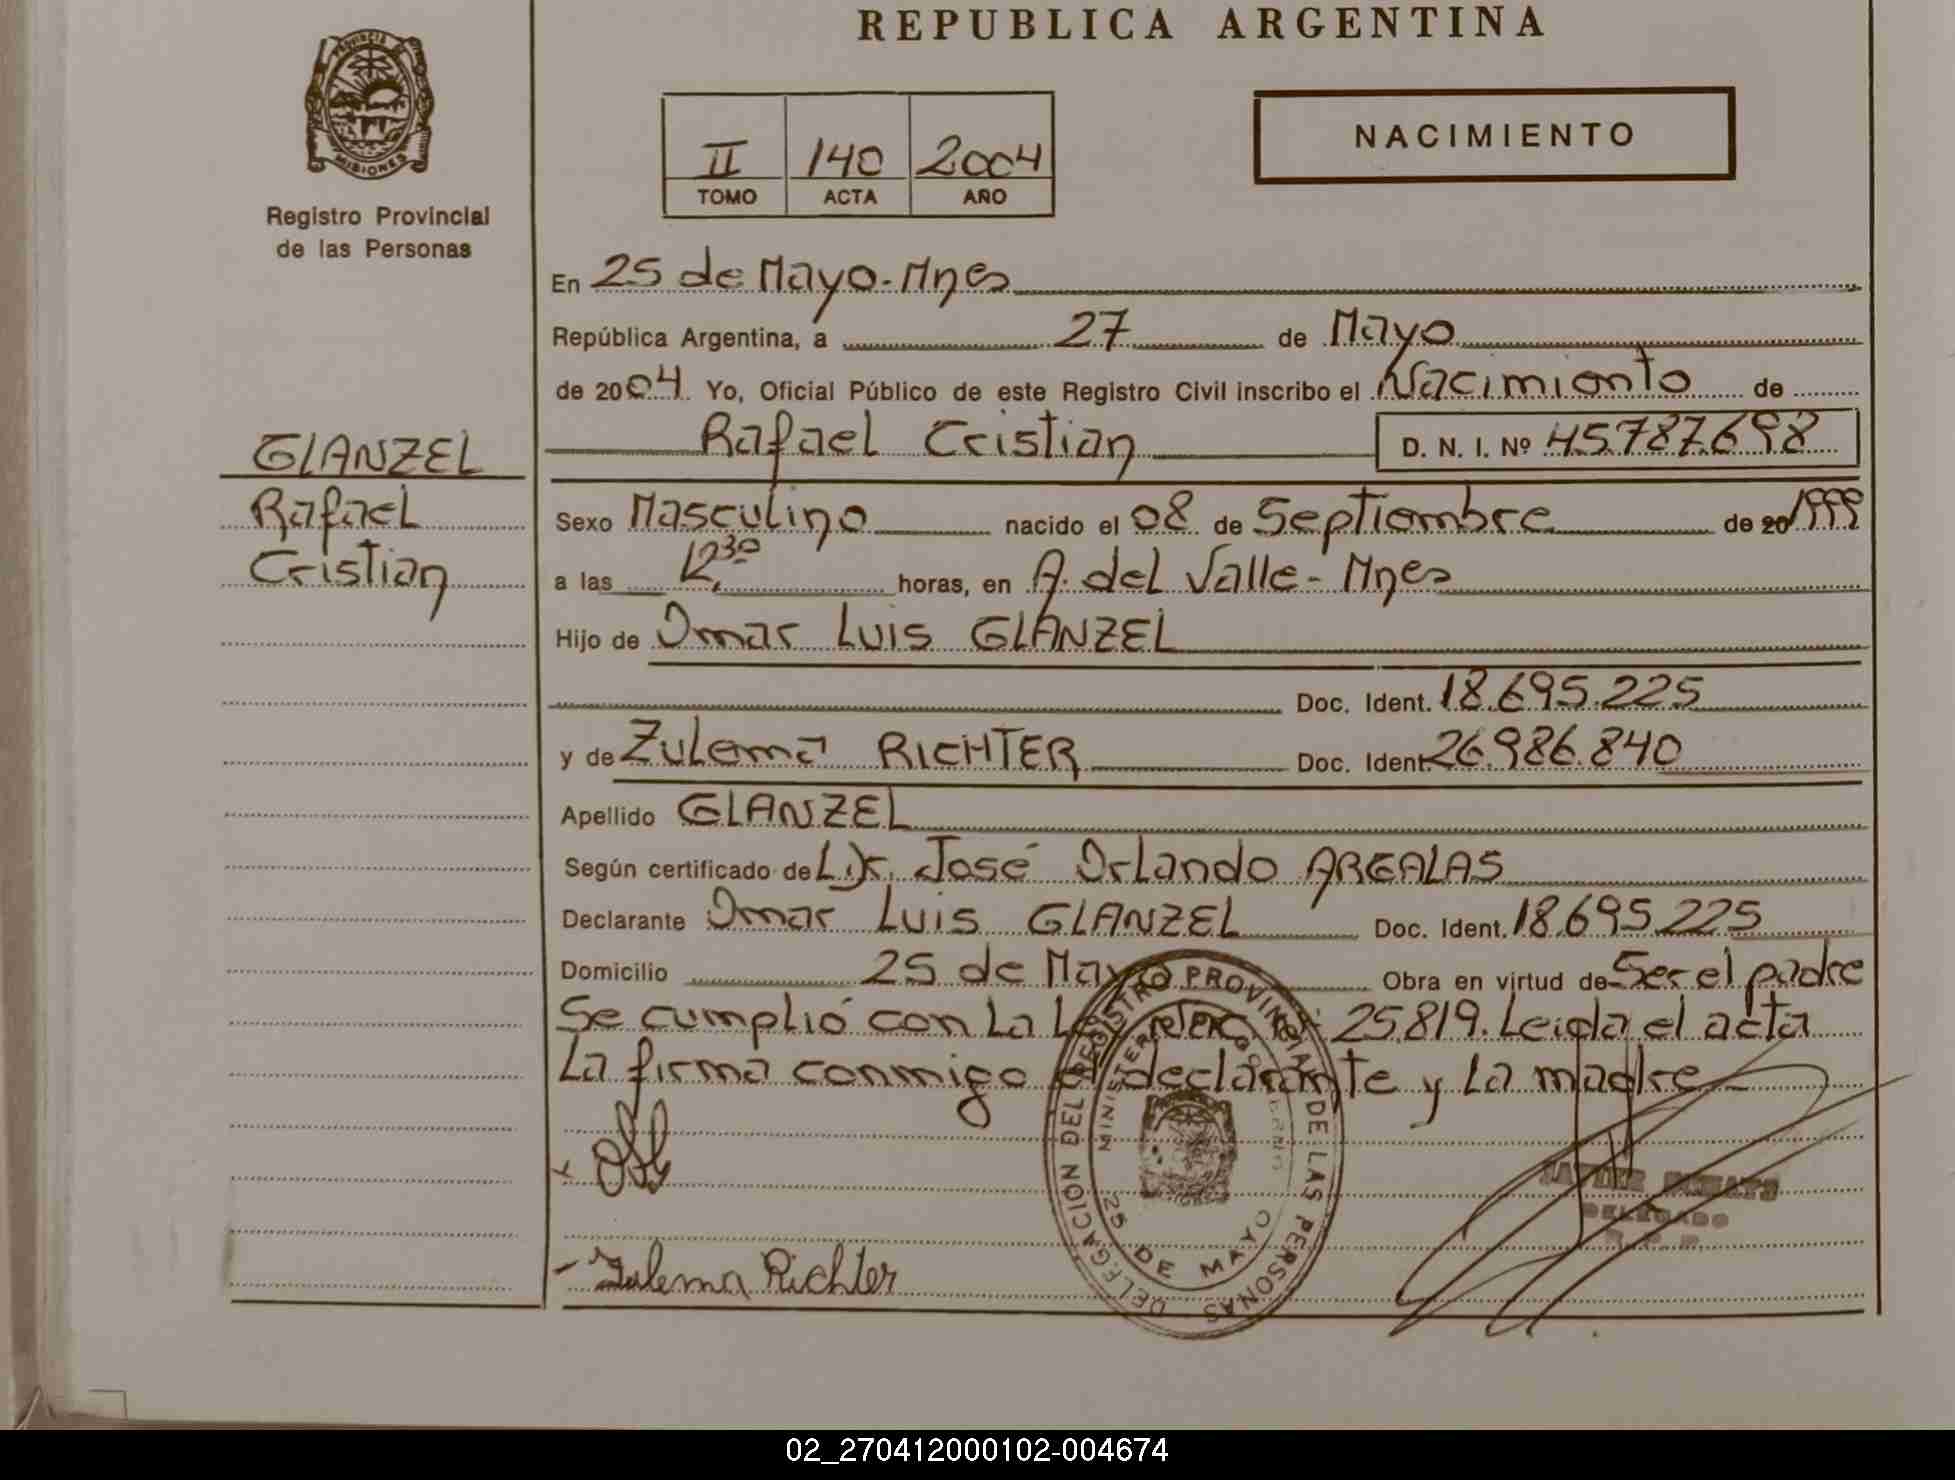 REPUBLICA ARGENTINA
PROVINCIA DE MISIONES
Registro Provincial
de las Personas
II 140 2004
TOMO ACTA AÑO
NACIMIENTO
En 25 de Mayo-Mnes
República Argentina, a 27 de Mayo
de 2004. Yo, Oficial Público de este Registro Civil inscribo el Nacimiento de
Rafael Cristian D. N. I. Nº 45.787.698
GLANZEL
Rafael
Cristian
Sexo Masculino nacido el 08 de Septiembre de 20 1999
a las 12,30 horas, en A. del Valle- Mnes
Hijo de Omar Luis GLANZEL
Doc. Ident. 18.695.225
y de Zulema RICHTER Doc. Ident. 26.986.840
Apellido GLANZEL
Según certificado de José Orlando
Declarante Omar Luis GLANZEL Doc. Ident. 18.695.225
Domicilio 25 de Mayo Obra en virtud de Ser el padre
Se cumplió con La 25.819. Leida el acta
La firma conmigo el declarante y La madre
Zulema Richter
DELEGACION DEL REGISTRO PROVINCIAL DE LAS PERSONAS
MINISTERIO DE GOBIERNO
25 DE MAYO
DELEGADO
02_270412000102-004674